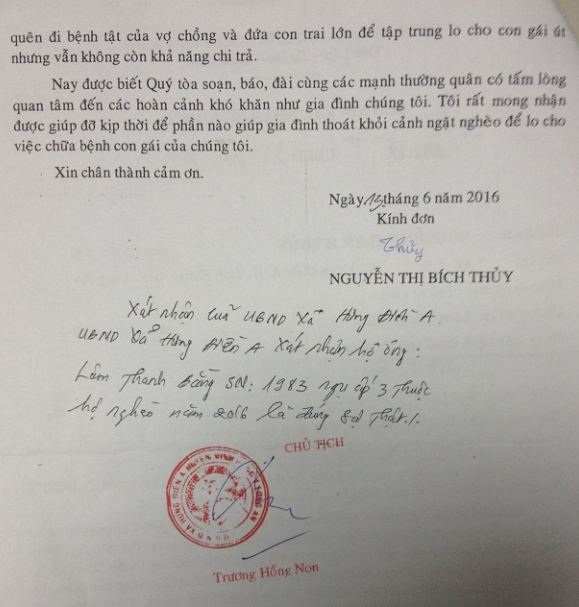 quên đi bệnh tật của vợ chồng và đứa con trai lớn để tập trung lo cho con gái út
nhưng vẫn không còn khả năng chi trả.
Nay được biết Quý tòa soạn, báo, đài cùng các mạnh thường quân có tấm lòng
quan tâm đến các hoàn cảnh khó khăn như gia đình chúng tôi. Tôi rất mong nhận
được giúp đỡ kịp thời để phần nào giúp gia đình thoát khỏi cảnh ngặt nghèo để lo cho
việc chữa bệnh con gái của chúng tôi.
Xin chân thành cảm ơn.
Ngày 13 tháng 6 năm 2016
Kính đơn
Thủy
NGUYỄN THỊ BÍCH THỦY
Xác nhận của UBND xã Hưng Điền A.
UBND xã Hưng Điền A xác nhận hộ ông:
Lâm Thanh Bằng SN: 1983 ngụ ấp 3 thuộc
hộ nghèo năm 2016 là đúng sự thật./.
CHỦ TỊCH
U B N D XÃ HƯNG ĐIỀN A, HUYỆN VĨNH LONG AN
Trương Hồng Non